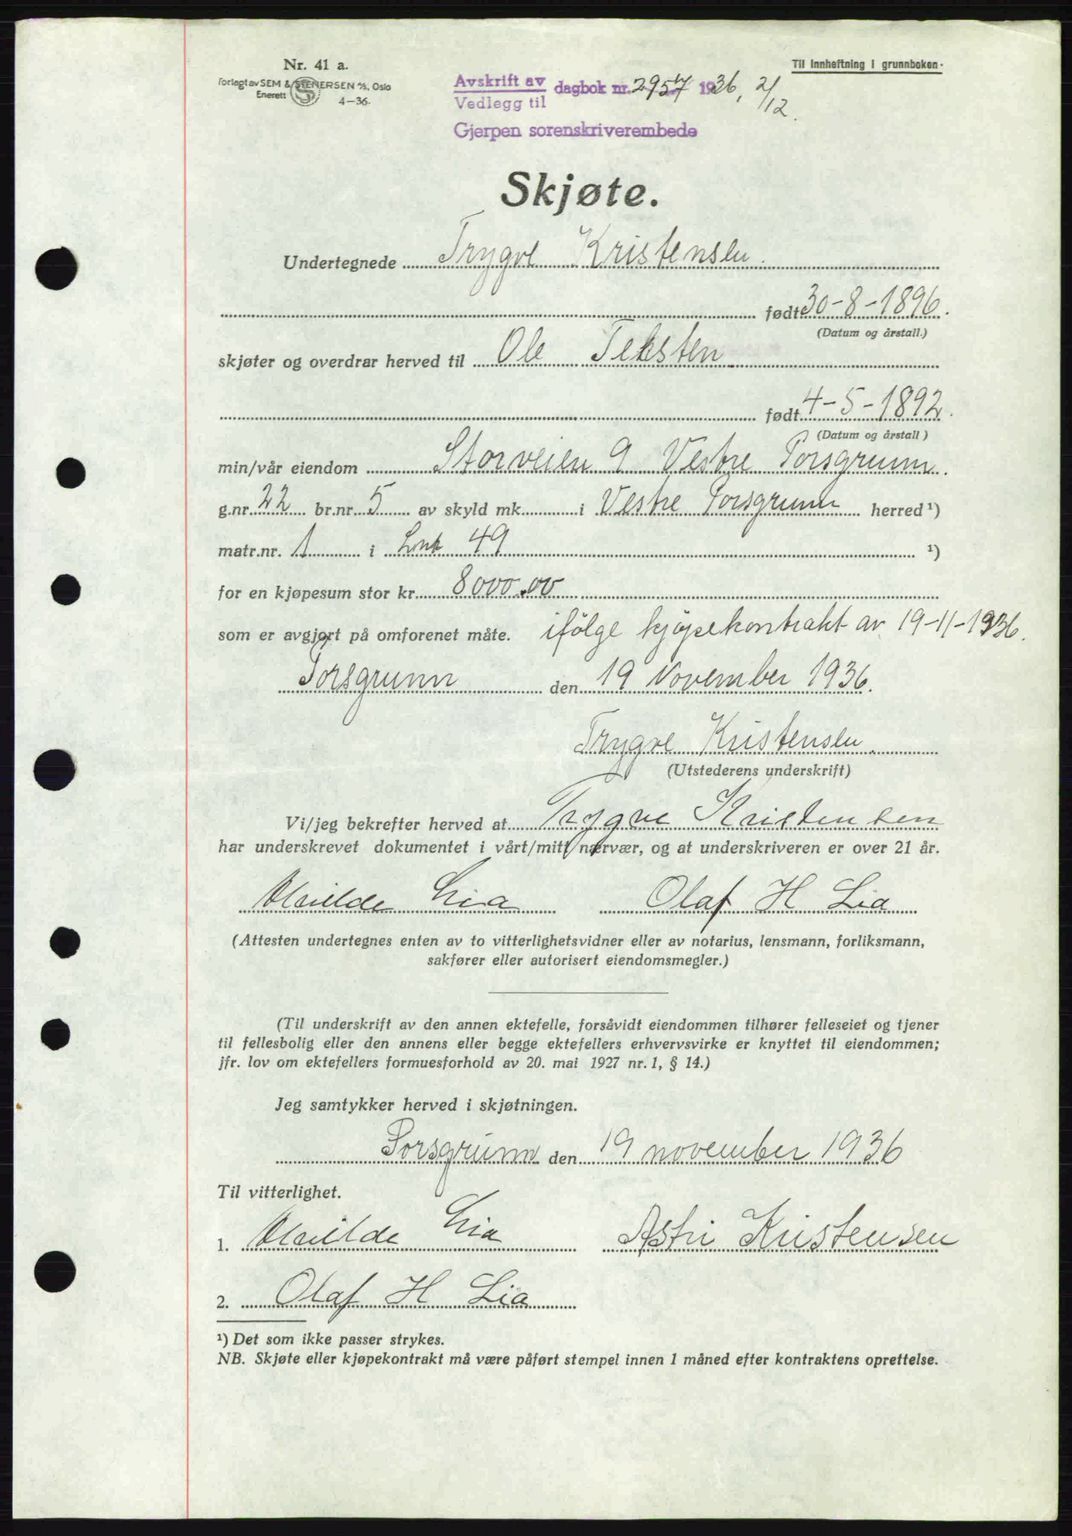 Nr. 41 a.
Forlagt av SEM & STENERSEN A/S, Oslo
Enerett 4-36.
Til innheftning i grunnboken.
Avskrift av
Vedlegg til dagbok nr. 2957 1936, 2/12.
Gjerpen sorenskriverembede
Skjøte.
Undertegnede Trygve Kristensen.
født 30-8-1896.
(Datum og årstall.)
skjøter og overdrar herved til Ole Teksten
født 4-5-1892.
(Datum og årstall)
min/vår eiendom Storveien 9 Vestre Porsgrunn.
g.nr. 22 br.nr. 5 av skyld mk. i Vestre Porsgrunn herred ¹)
matr.nr. 1 i 49 ¹)
for en kjøpesum stor kr. 8000.00
som er avgjort på omforenet måte. ifölge kjøpekontrakt av 19-11-1936.
Porsgrunn den 19 November 1936.
Trygve Kristensen.
(Utstederens underskrift)
Vi/jeg bekrefter herved at Trygve Kristensen
har underskrevet dokumentet i vårt/mitt nærvær, og at underskriveren er over 21 år.
Lia Olaf H Lia
(Attesten undertegnes enten av to vitterlighetsvidner eller av notarius, lensmann, forliksmann,
sakfører eller autorisert eiendomsmegler.)
(Til underskrift av den annen ektefelle, forsåvidt eiendommen tilhører felleseiet og tjener
til fellesbolig eller den annens eller begge ektefellers erhvervsvirke er knyttet til eiendommen;
jfr. lov om ektefellers formuesforhold av 20. mai 1927 nr. 1, § 14.)
Jeg samtykker herved i skjøtningen.
Porsgrunn den 19 november 1936
Til vitterlighet.
1. Lia Astri Kristensen
2. Olaf H Lia
¹) Det som ikke passer strykes.
NB. Skjøte eller kjøpekontrakt må være påført stempel innen 1 måned efter kontraktens oprettelse.